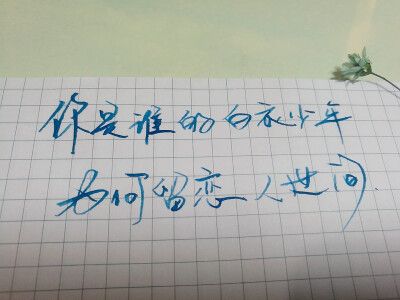 你是谁的白衣少年
为何留恋人世间.